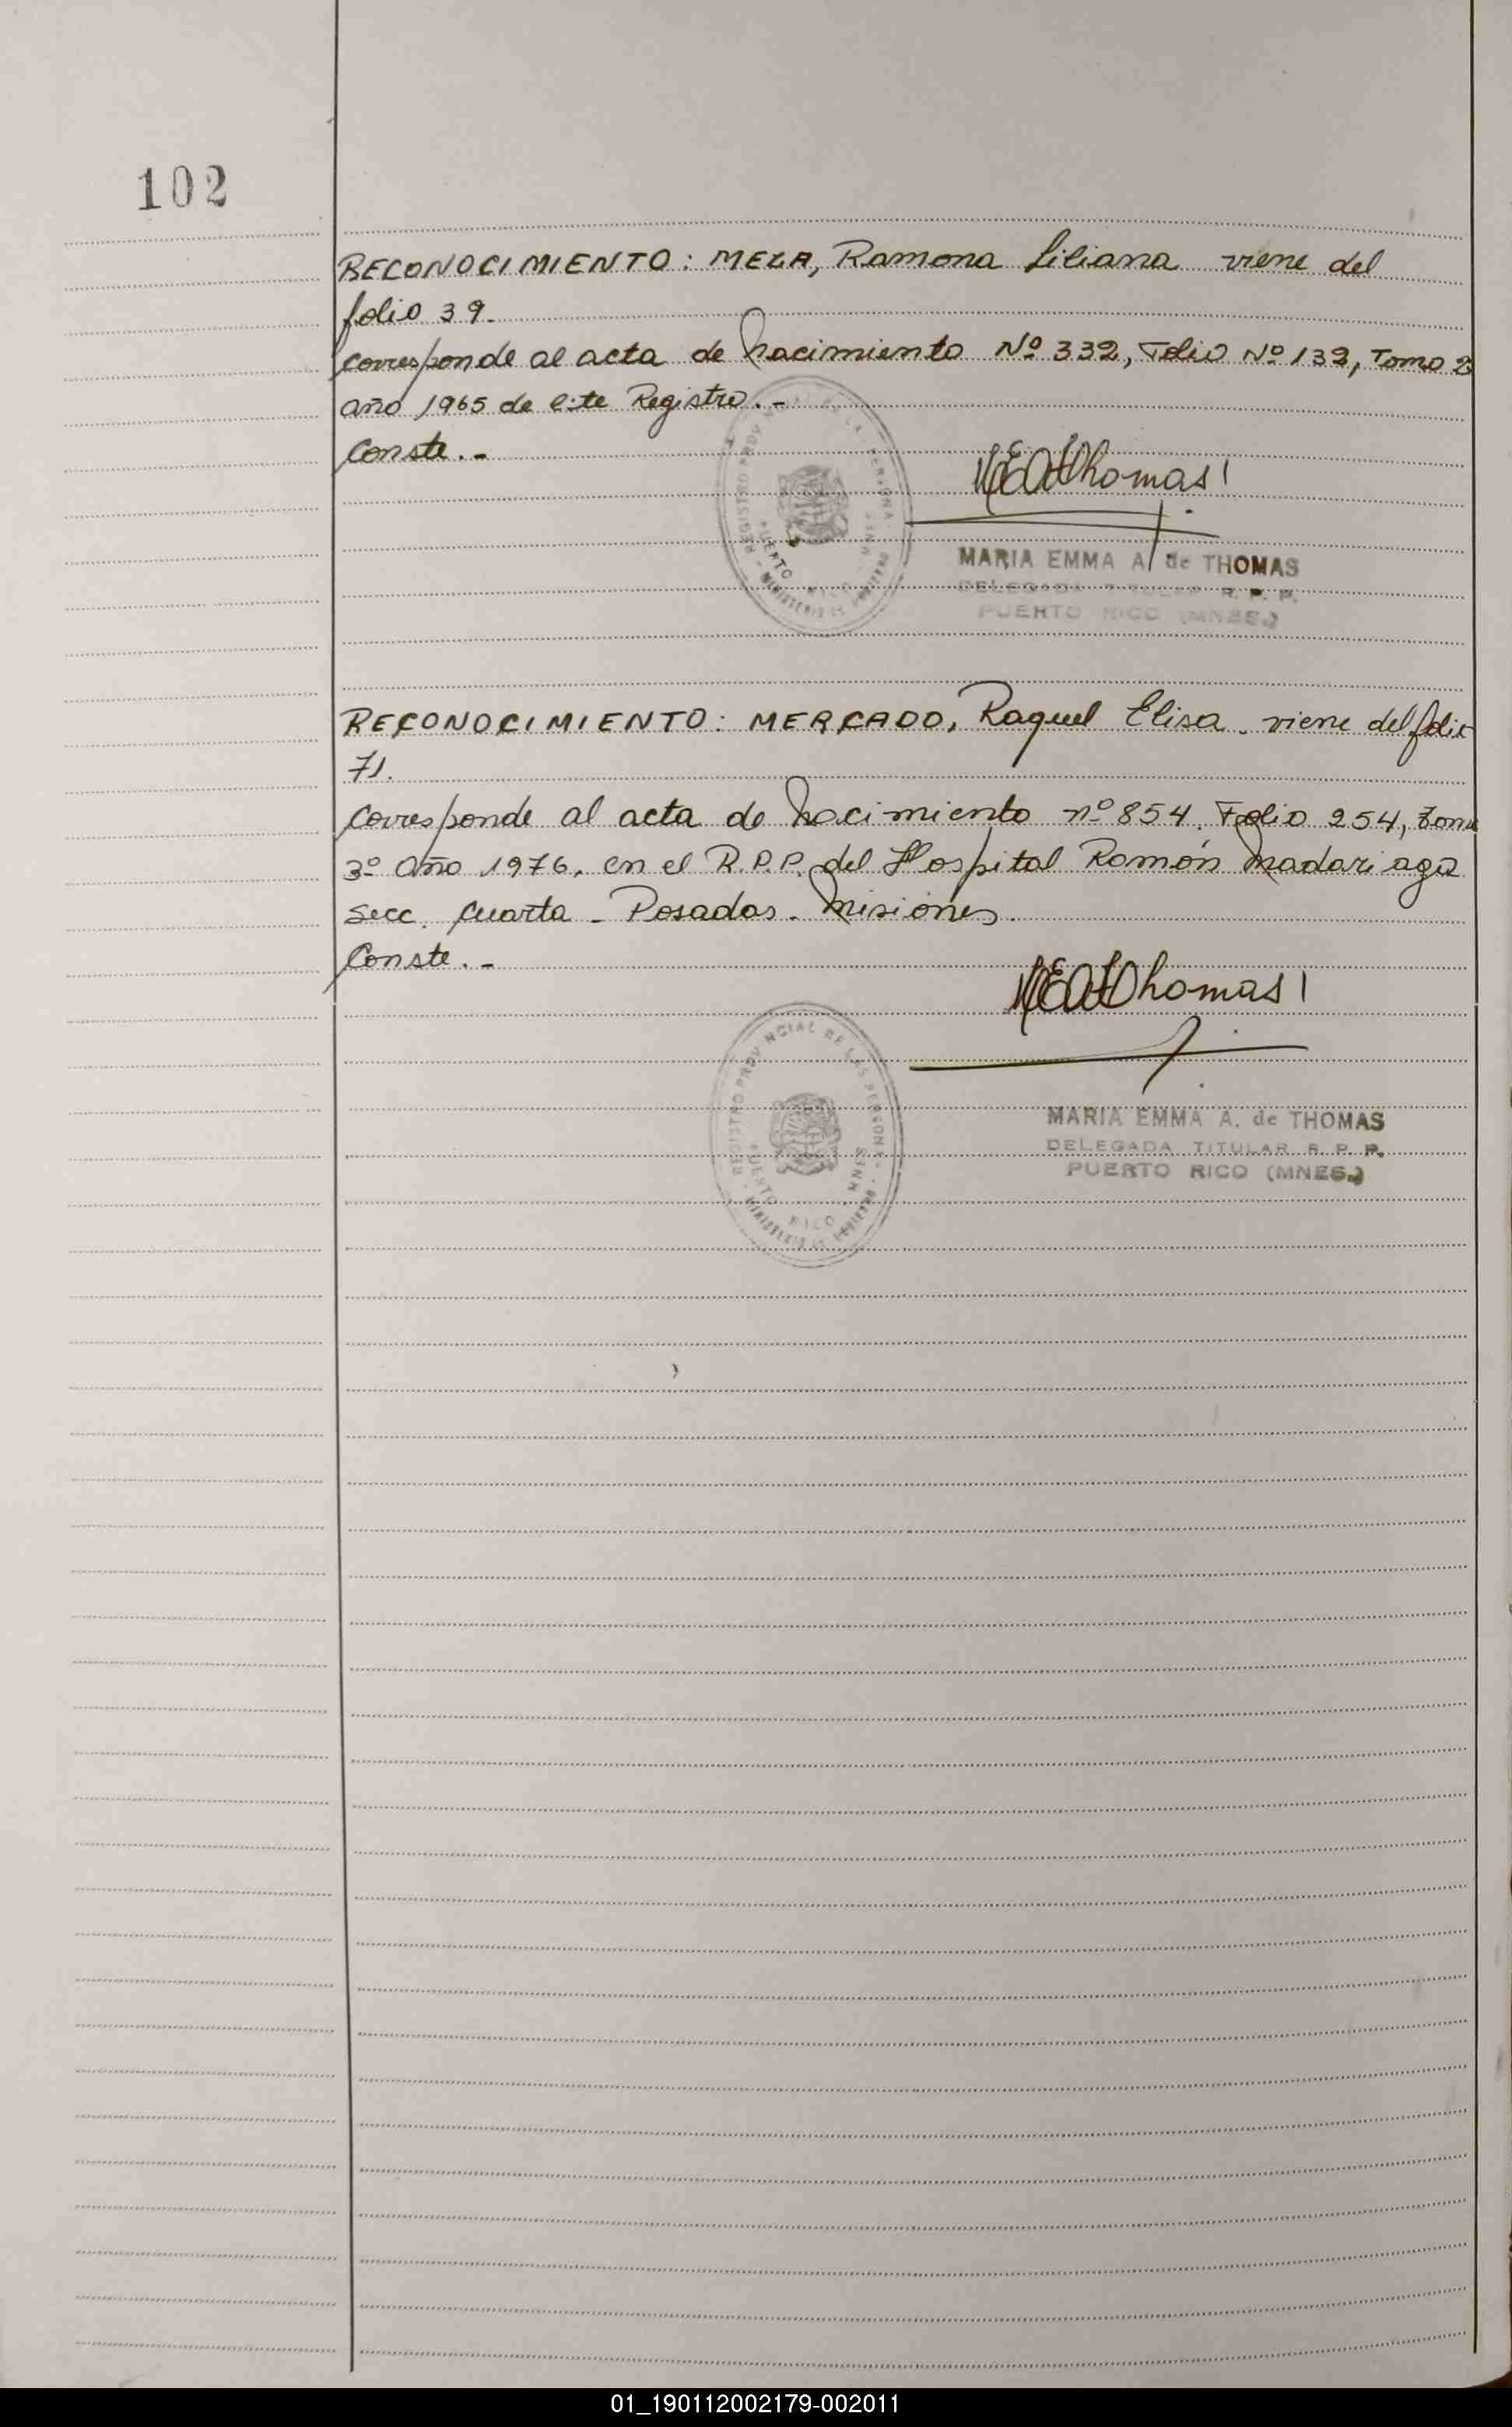 102
RECONOCIMIENTO: MEZA, Ramona Liliana viene del
folio 39.
corresponde al acta de Nacimiento Nº 332, Folio Nº 132, Tomo 2
año 1965 de este Registro.-
Conste.-
MEAdThomas
MARIA EMMA A. de THOMAS
DELEGADA TITULAR R. P. P.
PUERTO RICO (MNES.)
RECONOCIMIENTO: MERCADO, Raquel Elisa. viene del folio
71.
Corresponde al acta de Nacimiento nº 854. Folio 254, Tomo
3º año 1976. en el R.P.P. del Hospital Ramón Madariaga
secc. Cuarta - Posadas. Misiones.
Conste.-
MEAdThomas
REGISTRO PROVINCIAL DE LAS PERSONAS
PUERTO RICO MNES
MARIA EMMA A. de THOMAS
DELEGADA TITULAR R. P. P.
PUERTO RICO (MNES.)
01_190112002179-002011